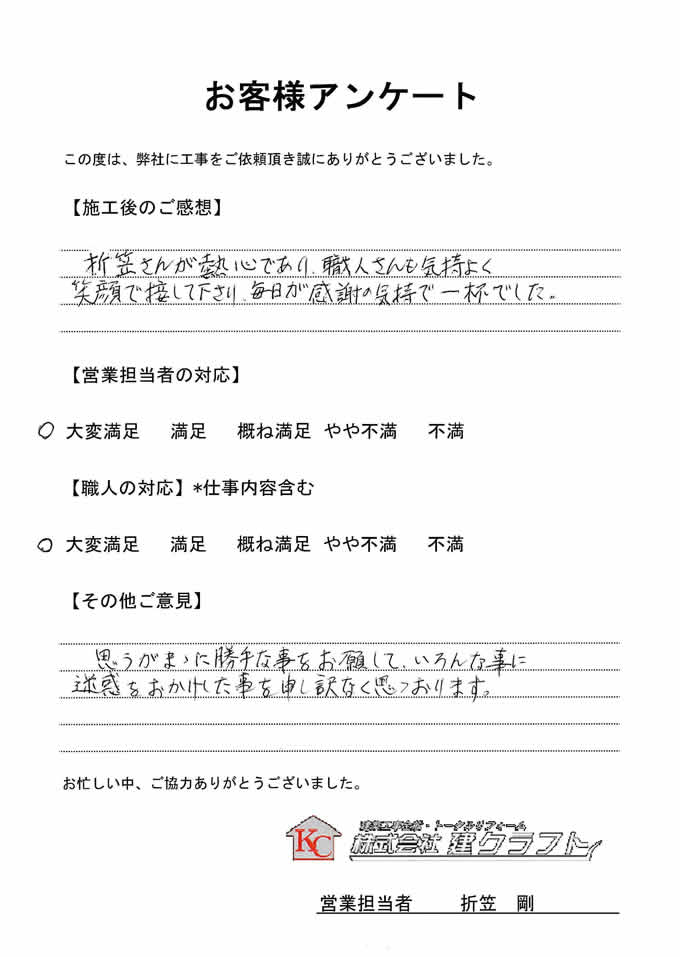 お客様アンケート
この度は、弊社に工事をご依頼頂き誠にありがとうございました。
【施工後のご感想】
折笠さんが熱心であり、職人さんも気持よく
笑顔で接して下さり、毎日が感謝の気持で一杯でした。
【営業担当者の対応】
○ 大変満足 満足 概ね満足 やや不満 不満
【職人の対応】*仕事内容含む
○ 大変満足 満足 概ね満足 やや不満 不満
【その他ご意見】
思うがまゝに勝手な事をお願して、いろんな事に
迷惑をおかけした事を申し訳なく思っております。
お忙しい中、ご協力ありがとうございました。
建築工事全般・トータルリフォーム
KC 株式会社 建クラフト
営業担当者 折笠 剛